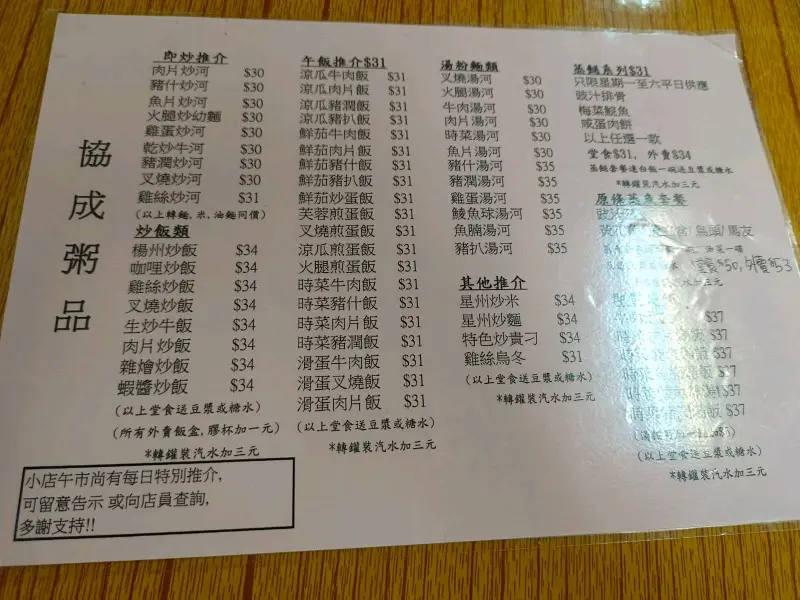 協成粥品
即炒推介
肉片炒河 $30
豬什炒河 $30
魚片炒河 $30
火腿炒幼麵 $30
雞蛋炒河 $30
乾炒牛河 $30
豬潤炒河 $30
叉燒炒河 $30
雞絲炒河 $31
(以上轉麵,米,油麵同價)
炒飯類
楊州炒飯 $34
咖哩炒飯 $34
雞絲炒飯 $34
叉燒炒飯 $34
生炒牛飯 $34
肉片炒飯 $34
雜燴炒飯 $34
蝦醬炒飯 $34
(以上堂食送豆漿或糖水)
(所有外賣飯盒,膠杯加一元)
*轉罐裝汽水加三元
小店午市尚有每日特別推介,
可留意告示 或向店員查詢,
多謝支持!!
午飯推介$31
涼瓜牛肉飯 $31
涼瓜肉片飯 $31
涼瓜豬潤飯 $31
涼瓜豬扒飯 $31
鮮茄牛肉飯 $31
鮮茄肉片飯 $31
鮮茄豬什飯 $31
鮮茄豬扒飯 $31
鮮茄炒蛋飯 $31
芙蓉煎蛋飯 $31
叉燒煎蛋飯 $31
涼瓜煎蛋飯 $31
火腿煎蛋飯 $31
時菜牛肉飯 $31
時菜豬什飯 $31
時菜肉片飯 $31
時菜豬潤飯 $31
滑蛋牛肉飯 $31
滑蛋叉燒飯 $31
滑蛋肉片飯 $31
(以上堂食送豆漿或糖水)
*轉罐裝汽水加三元
湯粉麵類
叉燒湯河 $30
火腿湯河 $30
牛肉湯河 $30
肉片湯河 $30
時菜湯河 $30
魚片湯河 $30
豬什湯河 $35
豬潤湯河 $35
雞蛋湯河 $35
鯪魚球湯河 $35
魚腩湯河 $35
豬扒湯河 $35
其他推介
星州炒米 $34
星州炒麵 $34
特色炒貴刁 $34
雞絲烏冬 $31
(以上堂食送豆漿或糖水)
*轉罐裝汽水加三元
蒸餸系列$31
只限星期一至六平日供應
豉汁排骨
梅菜鯇魚
咸蛋肉餅
以上任選一款
堂食$31, 外賣$34
蒸餸套餐連白飯一碗送豆漿或糖水
*轉罐裝汽水加三元
原條蒸魚套餐
堂食$50,外賣$53
$37
$37
$37
$37
$37
(以上堂食送豆漿或糖水)
*轉罐裝汽水加三元